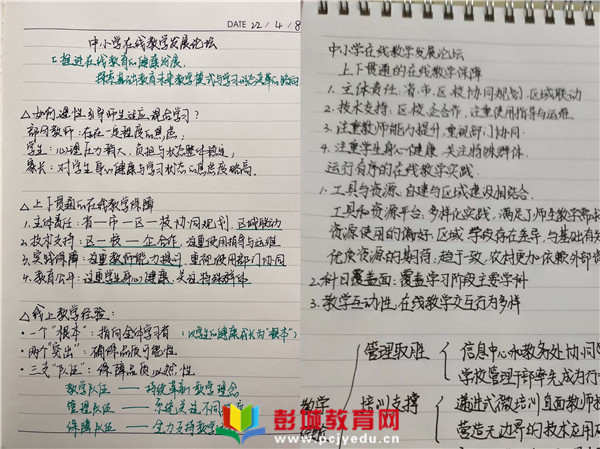 DATE 22 / 4 / 8
中小学在线教学发展论坛
推进在线教育的健康发展,
探索基础教育未来教学模式与学习
△如何理性引导师生适应
部门教师:存在一定程度的焦虑;
学生:心理压力稍大,负担与状态整体稳定;
家长:对学生身心健康与学习状态的焦虑度略高.
△上下贯通的在线教学保障
1.主体责任:省—市—区—校协同规划,区域联动
2.技术支持:区—校—企合作,注重使用指导与运维
3.实践保障:注重教师能力提升,重视使用部门协同
4.教育公平:注重学生身心健康,关注特殊群体.
△线上教学经验:
·一个"根本":指向全体学习者
·两个"突出":确保品质可能性
·三支"队伍":保障品质
教学队伍——持续革新教学理念
管理队伍——
保障队伍——全力支持教学
中小学在线教学发展论坛
上下贯通的在线教学保障
1.主体责任:省、市、区、校协同规划,区域联动
2.技术支持:区、校、企合作,注重使用指导与运维
3.注重教师能力提升,重视部门协同
4.注重学生身心健康,关注特殊群体.
运行有序的在线教学实践
1.工具与资源:自建与区域建设相结合.
工具和资源平台,多样化实践,满足了师生教学需求
资源使用的偏好,区域、学段存在差异,与基础有关
优质资源的期待,趋于一致,农村更加依赖外部资
2.科目覆盖面:覆盖学习阶段主要学科
3.教学互动性,在线教学交互行为多样
管理跟进
信息中心和教务处协同
学校管理干部率先成为行
教学
培训支撑
递进式微培训直面教师
营造无边界的技术应用
彭城教育网
www.pcjyedu.cn